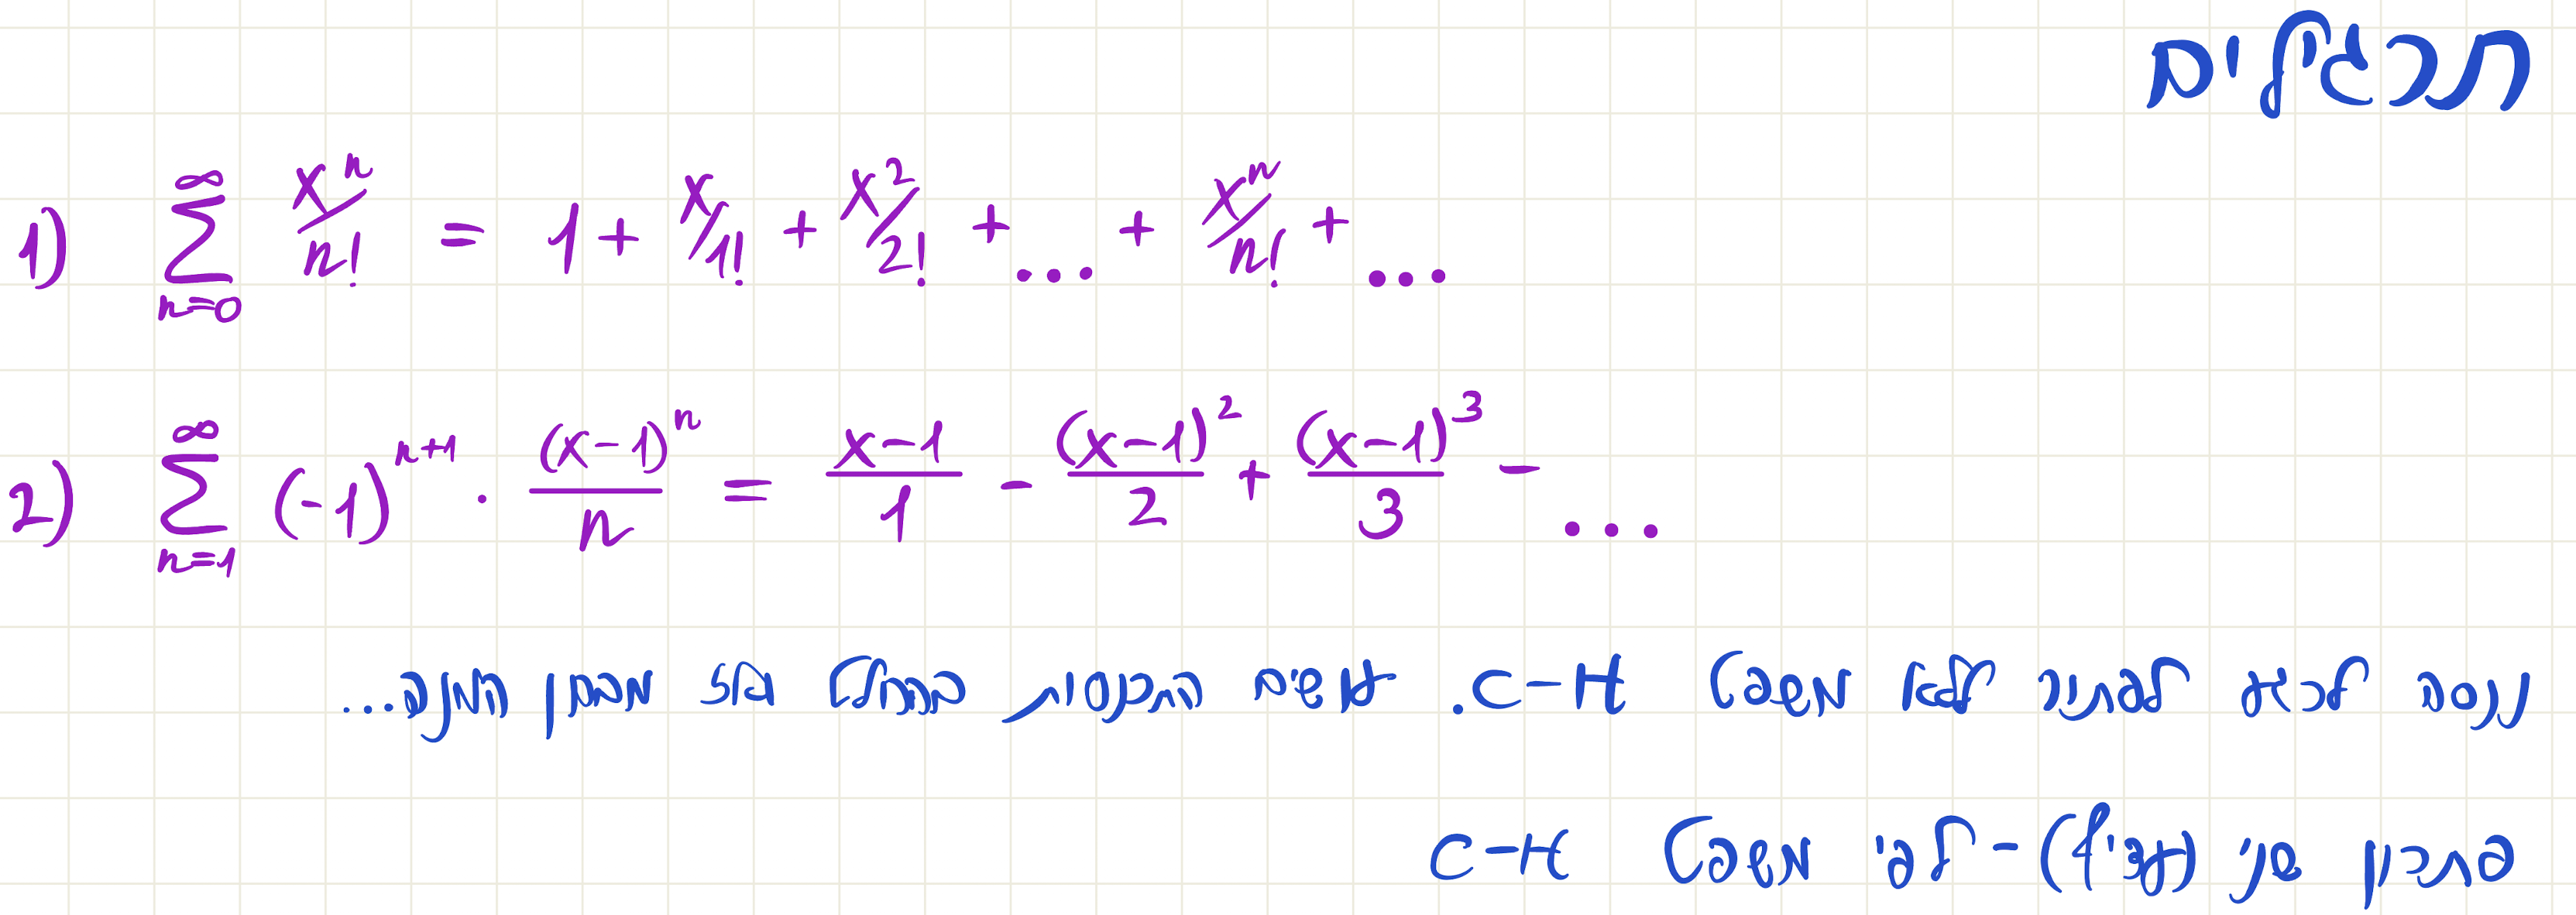 תרגילים
1) ∑_{n=0}^{∞} x^n/n! = 1 + x/1! + x^2/2! + ... + x^n/n! + ...
2) ∑_{n=1}^{∞} (-1)^{n+1} · (x-1)^n/n = (x-1)/1 - (x-1)^2/2 + (x-1)^3/3 - ...
ננסה לרגע לפתור ללא משפט C-H. תחום התכנסות, בהחלט ולפי מבחן המנה...
פתרון שני (עדיף) - לפי משפט C-H